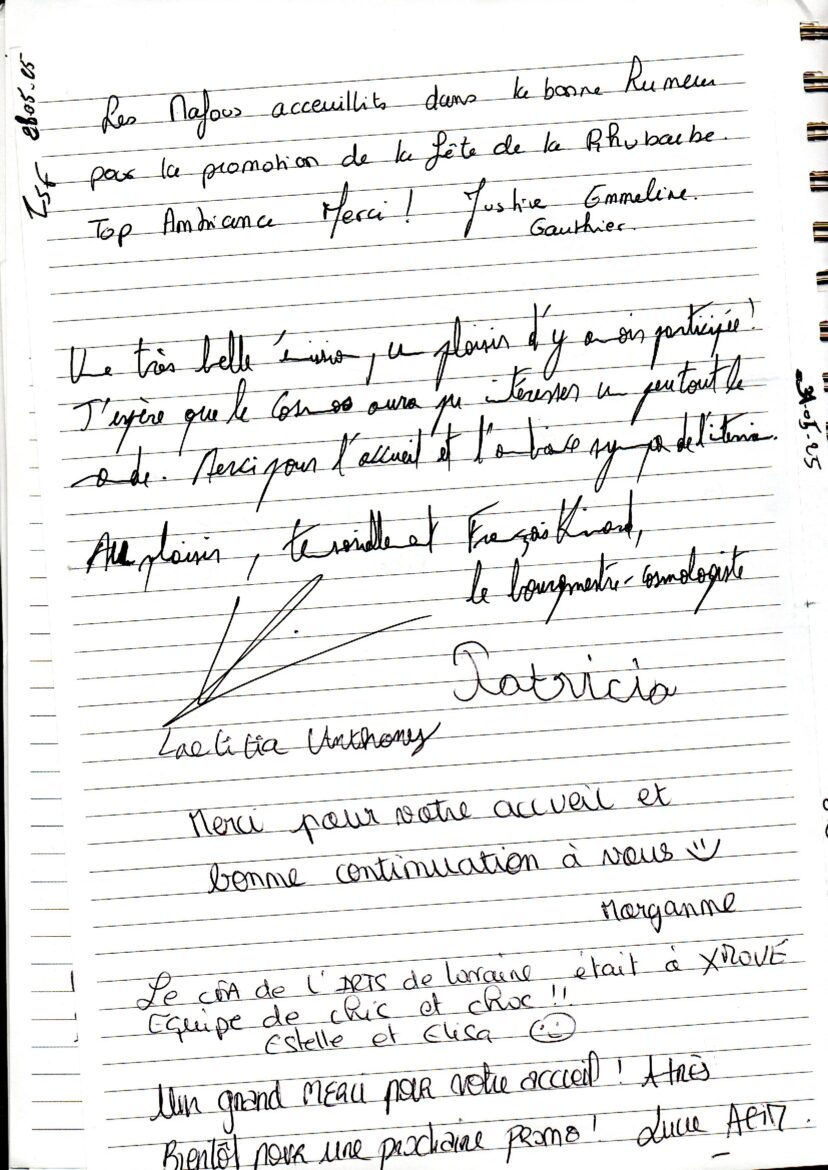 28.05.25
Les Mafous acceuillits dans la bonne humeur
pour la promotion de la fête de la Rhubarbe.
Top Ambiance Merci ! Justine Emmeline.
Gauthier.
31.05.25
Une très belle émission, un plaisir d'y avoir participée !
J'espère que le Cosmos aura pu intéresser un peu tout le
monde. Merci pour l'accueil et l'ambiance sympa de l'
Au plaisir, François
le bourgmestre-cosmologiste
Patricia
Laetitia Anthony
Merci pour votre accueil et
bonne continuation à vous
Morganne
Le CFA de l'IRTS de lorraine était à
Equipe de chic et choc !!
Estelle et Elisa
Un grand merci pour votre accueil ! A très
Bientôt pour une prochaine promo ! Lucie